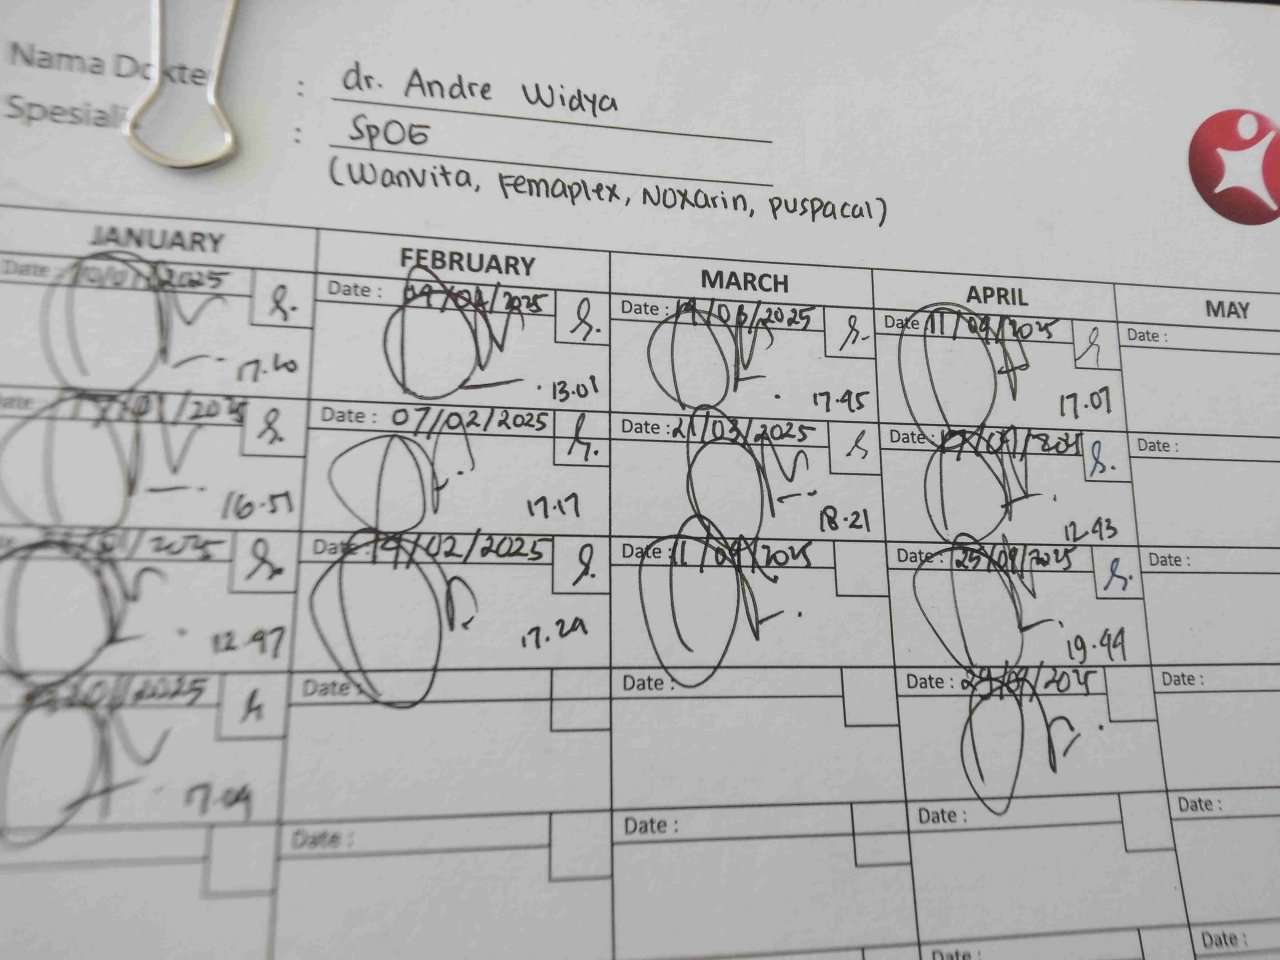 Nama Dokte : dr. Andre Widya
Spesiali : SpOG
(Wanvita, Femaplex, Noxarin, puspacal)
JANUARY FEBRUARY MARCH APRIL MAY
Date : /2025 Date : /2025 Date : /03/2025 Date 11/04/2025 Date :
17.20 13.01 17.45 17.07
/01/2025 Date : 07/02/2025 Date : 21/03/2025 Date : Date :
16.51 17.17 18.21 12.43
/2025 Date : 19/02/2025 Date : 11/04/2025 Date : 25/04/2025 Date :
12.47 17.29 19.44
/2025 Date : Date : Date : 29/04/2025 Date :
17.04
Date : Date : Date : Date :
Date : Date :